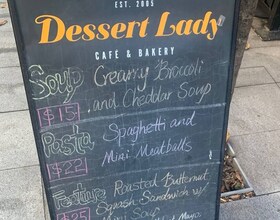 EST. 2005
Dessert Lady
CAFE & BAKERY
Soup Creamy Broccoli
$15 and Cheddar Soup
Pasta Spaghetti and
$22 Mini Meatballs
Feature Roasted Butternut
$25 Squash Sandwich w/
Soup
Mayo